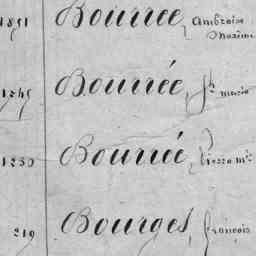 1851 Bourrée, Ambroise
Maxime
1245 Bourrée, Jn marie
1250 Bourrée, Pierre mie
219 Bourges, François